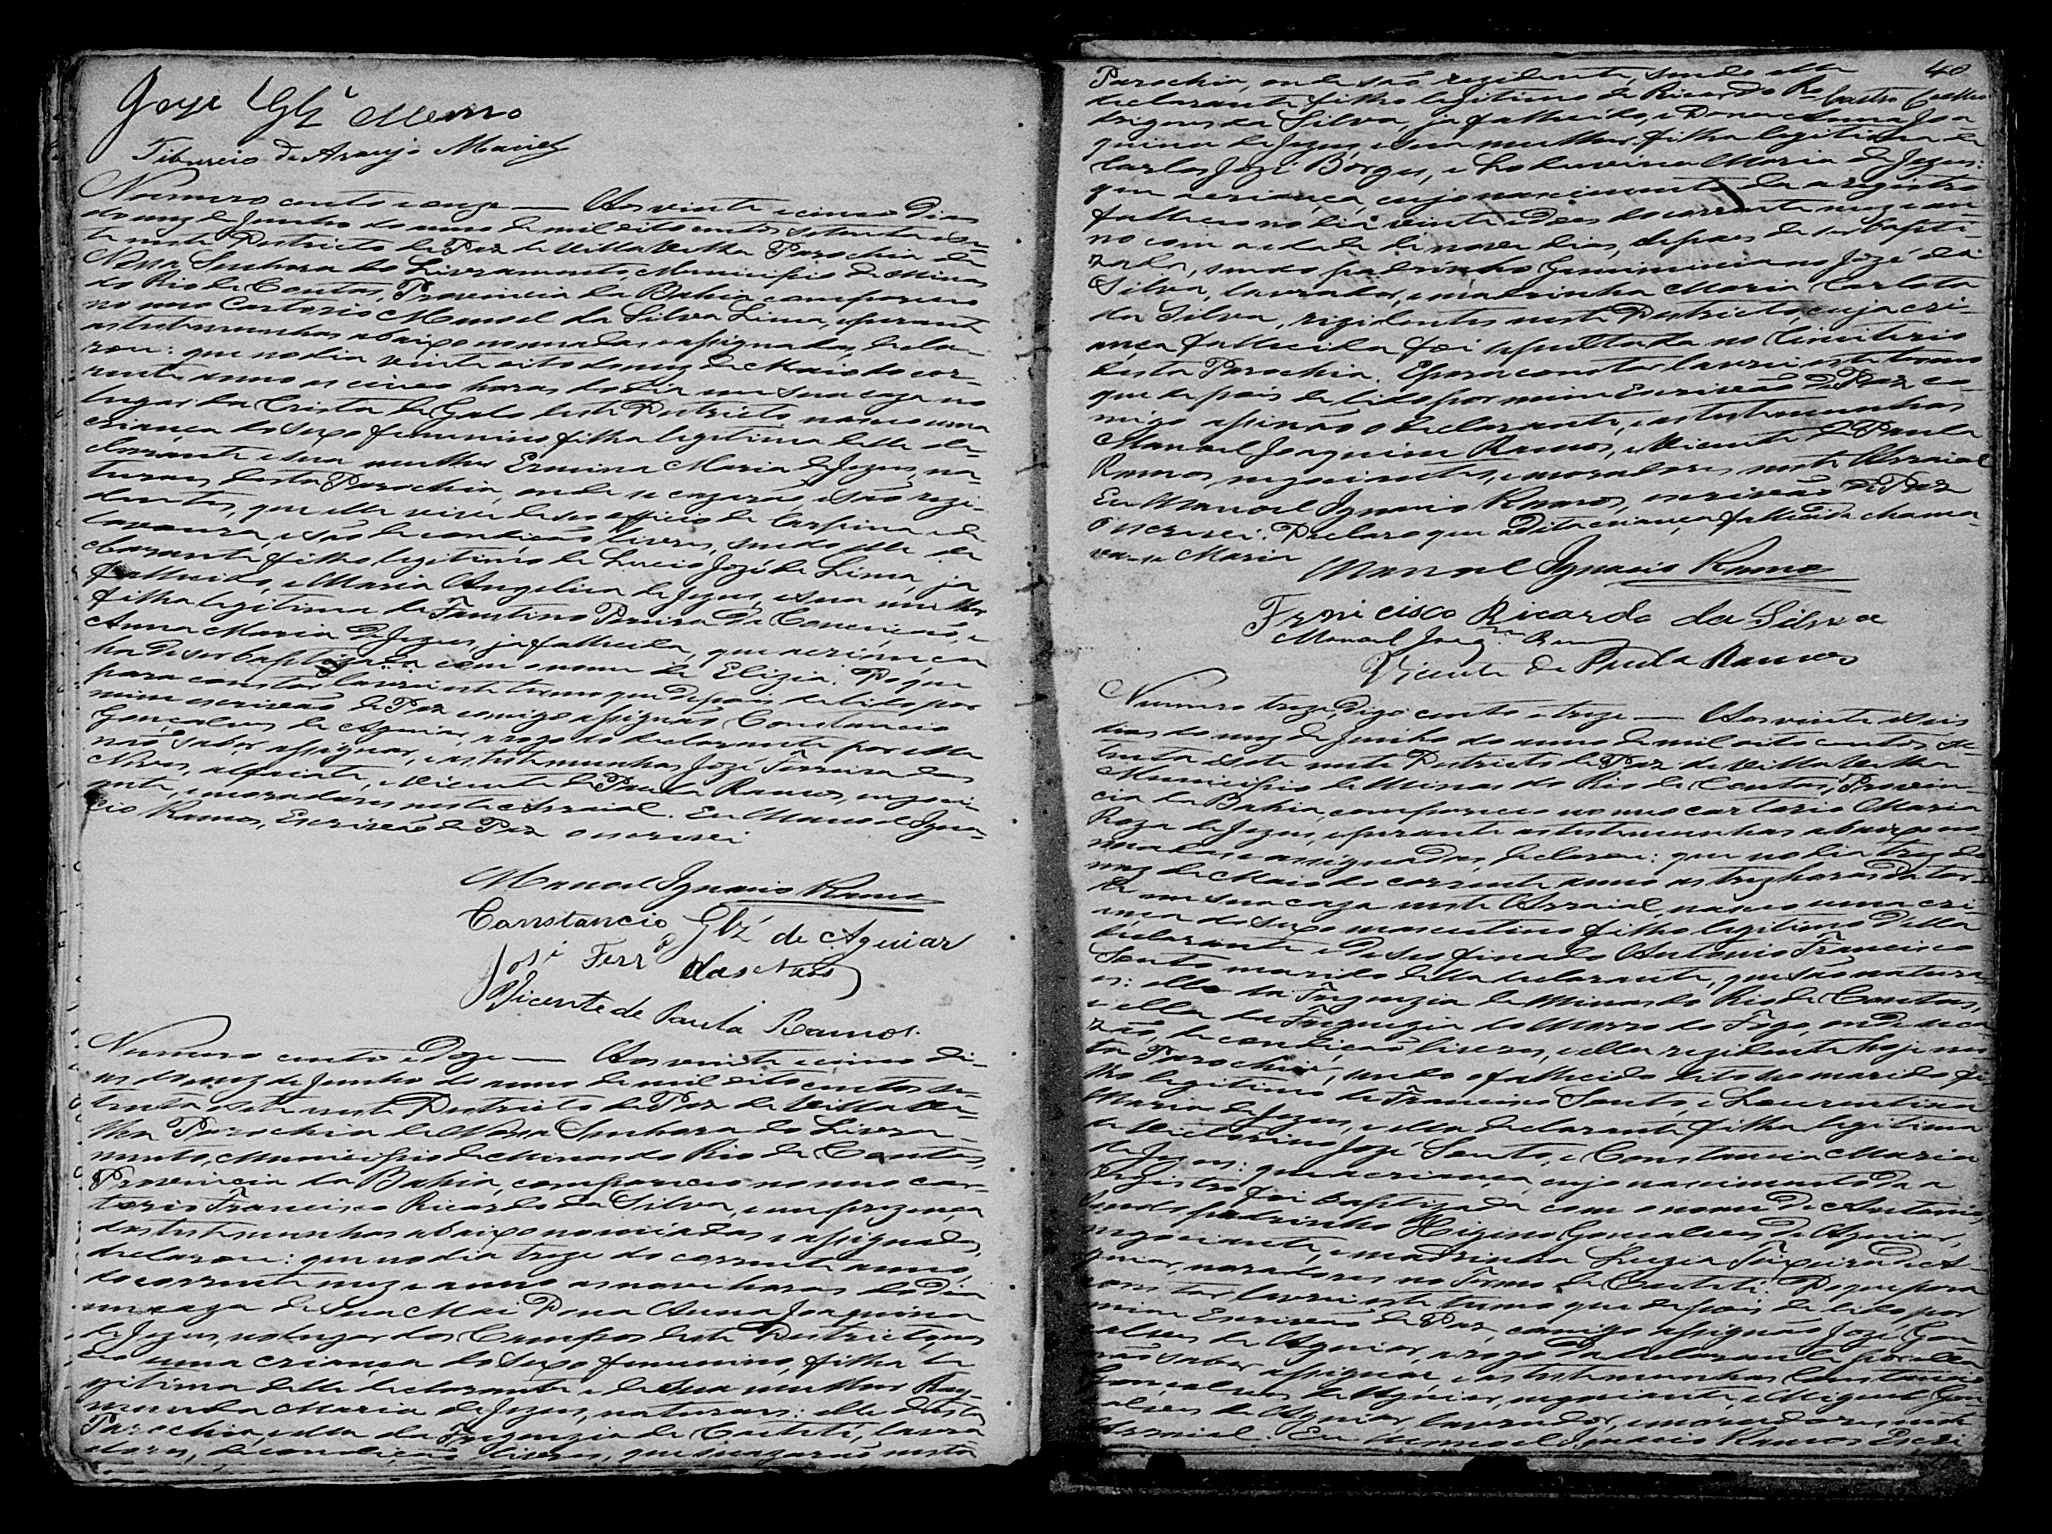 José Glz' Mesmo
Tiburcio de Araujo Maciel
Numero cento e onze — Aos vinte e cinco dias
do mez de Junho do anno de mil oito centos setenta e se-
te neste Districto de Paz de Villa Velha Parochia de
Nossa Senhora do Livramento, Municipio de Minas
do Rio de Contas, Provincia da Bahia, compareceo
no meo Cartorio Manoel da Silva Lima, e perante
as testemunhas abaixo nomeadas e assignadas, decla-
rou: que no dia vinte oito do mez de Maio do cor-
rente anno as cinco horas do dia em sua caza no
lugar da Crista de Galo deste Districto nasceo uma
criança do sexo femenino filha legitima delle de-
clarante e sua mulher Ermina Maria de Jezus, na-
turaes desta Parochia, onde se cazarão, e são rezi-
dentes, que elle vive de seo officio de Carpina e de
lavoura, e são de condicão livres, sendo elle de-
clarante filho legitimo de Lucio Jozé de Lima, ja
fallecido, e Maria Angelica de Jezus, e sua mulher
filha legitima de Faustino Pereira da Conceicão, e
Anna Maria de Jezus, ja fallecida, que a criança
ha de ser baptizada com o nome de Elizia. Do que
para constar lavrei este termo que depois de lido por
mim escrivão de Paz comigo assignão Constancio
Gonçalves de Aguiar, a rogo do declarante por elle
não saber assignar, e as testemunhas Jozé Ferreira das
Neves, e Vicente de Paula Ramos, negoci-
ante, e moradores neste Arraial. Eu Manoel Igna-
cio Ramos, Escrivão de Paz o escrevi
Manoel Ignacio Ramos
Constancio Glz' de Aguiar
José Ferrª das Neves
Vicente de Paula Ramos.
Numero cento e doze — Aos vinte e cinco di-
as do mez de Junho do anno de mil oito centos se-
tenta e sete neste Districto de Paz de Villa Ve-
lha Parochia de Nossa Senhora do Livra-
mento, Municipio de Minas do Rio de Contas,
Provincia da Bahia, compareceo no meo car-
torio Francisco Ricardo da Silva, e em prezença
das testemunhas abaixo nomeadas e assignadas,
declarou: que no dia treze do corrente anno,
do corrente mez e anno as nove horas do dia
em caza de sua Mai Dona Anna Joaquina
de Jezus, no lugar dos Campos deste Districto, nas-
ceo uma criança do sexo femenino, filha le-
gitima delle declarante e de sua mulher Ray-
munda Maria de Jezus, naturaes: elle desta
Parochia, e ella da Freguezia de Caetité, lavra-
dores, de condicão livres, que se cazarão nesta
40
Parochia, onde são rezidentes, sendo elle
declarante filho legitimo de Ricardo Ro-
drigues da Silva, ja fallecido, e Dona Anna Joa-
quina de Jezus, e sua mulher filha legitima de
Carlos Jozé Borges, e Lodovina Maria de Jezus:
que a criança, cujo nascimento, da a registro
falleceo no dia vinte e dois do corrente mez e an-
no com a idade de nove dias, depois de ser bapti-
zada, sendo padrinho Gemeniano Jozé da
Silva, lavrador, e madrinha Maria Carlota
da Silva, rezidentes neste Districto, cuja cri-
ança fallecida foi sepultada no Cimiterio
desta Parochia. E para constar lavrei este termo
que depois de lido por mim Escrivão de Paz co-
migo assinão o declarante, e as testemunhas
Manoel Joaquim Ramos, e Vicente de Paula
Ramos negociantes, e moradores neste Arraial
Eu Manoel Ignacio Ramos, escrivão de Paz
o escrevi. Declaro que Dita criança fallecida chama-
va-se Maria
Manoel Ignacio Ramos
Francisco Ricardo da Silva
Manoel Joaqm Ramos
Vicente de Paula Ramos
Numero treze, digo cento e treze — Aos vinte e seis
dias do mez de Junho do anno de mil oito centos se-
tenta e sete neste Districto de Paz de Villa Velha
Municipio de Minas do Rio de Contas, Provin-
cia da Bahia, compareceo no meo cartorio Maria
Roza de Jezus, e perante as testemunhas abaixo no-
meadas, e assignadas, declarou: que no dia trez do
mez de Maio do corrente anno as trez horas da tar-
de em sua caza neste Arraial, nasceo uma cri-
ança do sexo masculino filho legitimo della
declarante e de seo finado Antonio Francisco
Souto marido della declarante, que são natura-
es: elle da Freguezia de Minas do Rio de Contas,
e ella da Freguezia do Morro do Fogo, onde se ca-
zarão, de condicão livres, e ella rezidente hoje nes-
ta Parochia, sendo o fallecido dito seo marido fi-
lho legitimo de Francisco Souto, e Lourentina
Maria de Jezus, e ella declarante filha legitima
de Victorino Jozé Souto, e Constancia Maria
de Jezus: que a criança, cujo nascimento da a
registro foi baptizada com o nome de Antonio,
sendo padrinho Higino Gonçalves de Aguiar,
negociante, e madrinha Luzia de A-
guiar, moradores no Termo de Caetité. Do que para
constar lavrei este termo que depois de lido, por
mim Escrivão de Paz, comigo assignão Jozé Gon-
calves de Aguiar, a rogo da declarante por ella
não saber assignar e as testemunhas Constancio
Goncalves de Aguiar, negociante, e Miguel Gon-
calves de Aguiar, lavrador, e moradores neste
Arraial. Eu Manoel Ignacio Ramos Escri